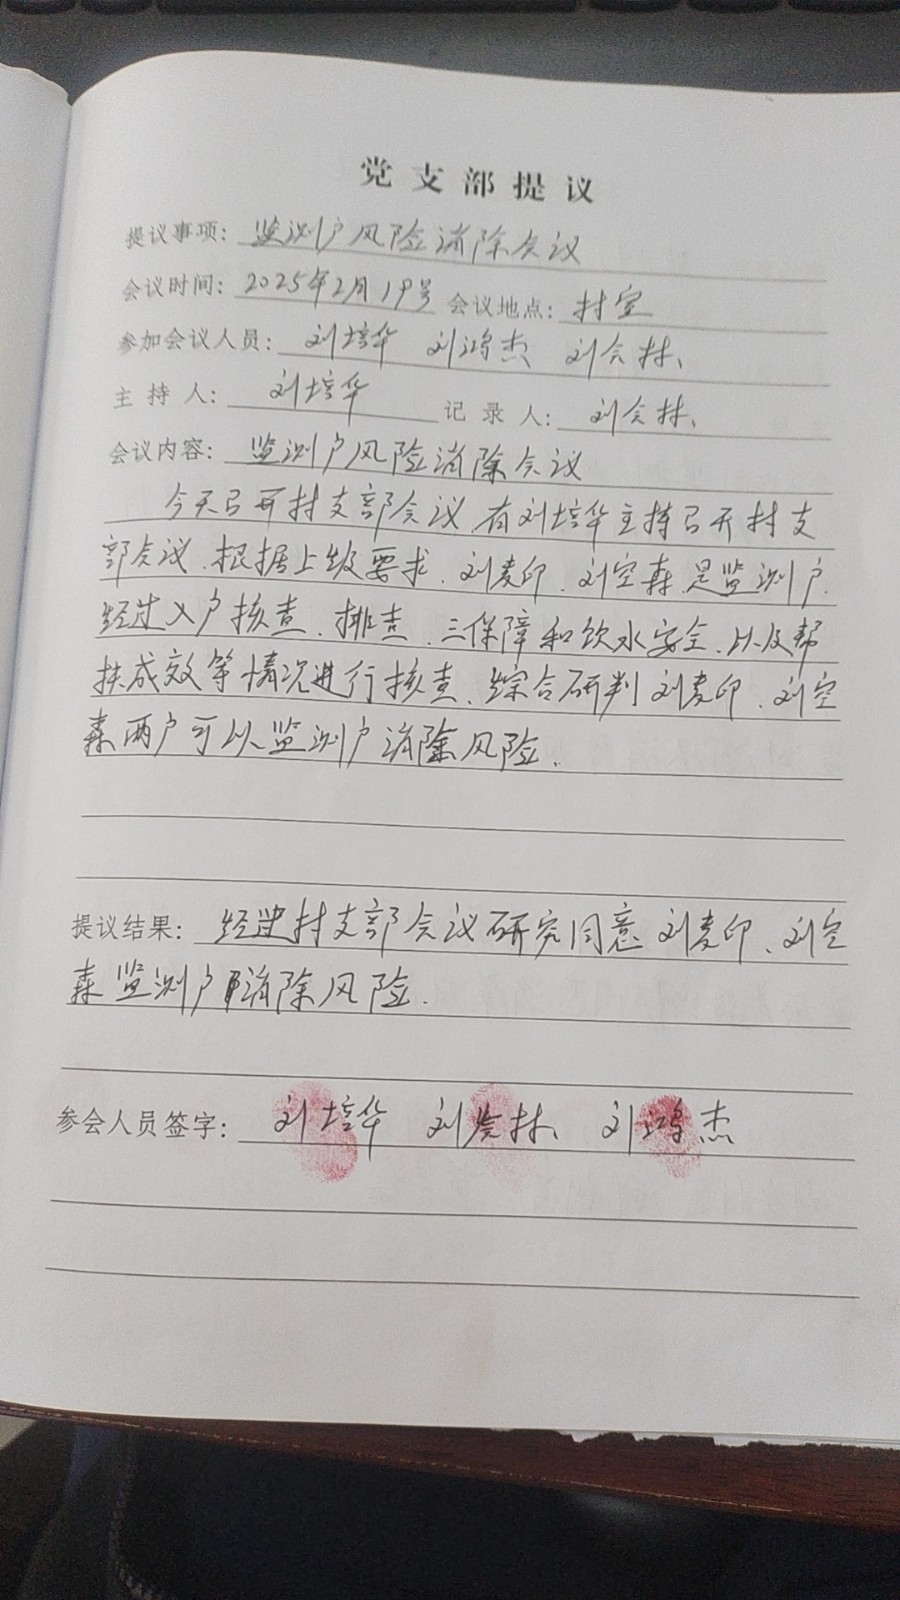 党支部提议
提议事项：监测户风险消除会议
会议时间：2025年2月19号 会议地点：村室
参加会议人员：刘培华 刘鸿杰 刘会林、
主持人：刘培华 记录人：刘会林、
会议内容：监测户风险消除会议
今天召开村支部会议，有刘培华主持召开村支
部会议，根据上级要求，刘麦印、刘空森是监测户，
经过入户核查、排查、三保障和饮水安全、以及帮
扶成效等情况进行核查、综合研判刘麦印、刘空
森两户可以监测户消除风险．
提议结果：经过村支部会议研究同意刘麦印、刘空
森监测户消除风险．
参会人员签字：刘培华 刘会林、刘鸿杰